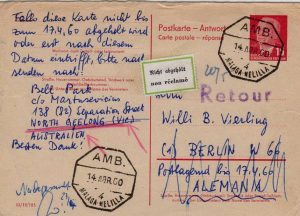 Falls diese Karte nicht bis
zum 17.4.60 abgeholt wird
oder erst nach diesem
Datum eintrifft, bitte nach-
senden nach!
Bell Park
c/o
138 Separation Street
NORTH GEELONG (VIC)
AUSTRALIEN
Besten Dank!
AMB.
14 ABR.60
MALAGA MELILLA
Postkarte - Antwort
Carte postale - réponse
Nicht abgeholt
non réclamé
AMB.
14 ABR.60
MALAGA MELILLA
Retour
Willi B. Vierling
BERLIN W 66
Postlagernd bis 17.4.60
ALEMANIA